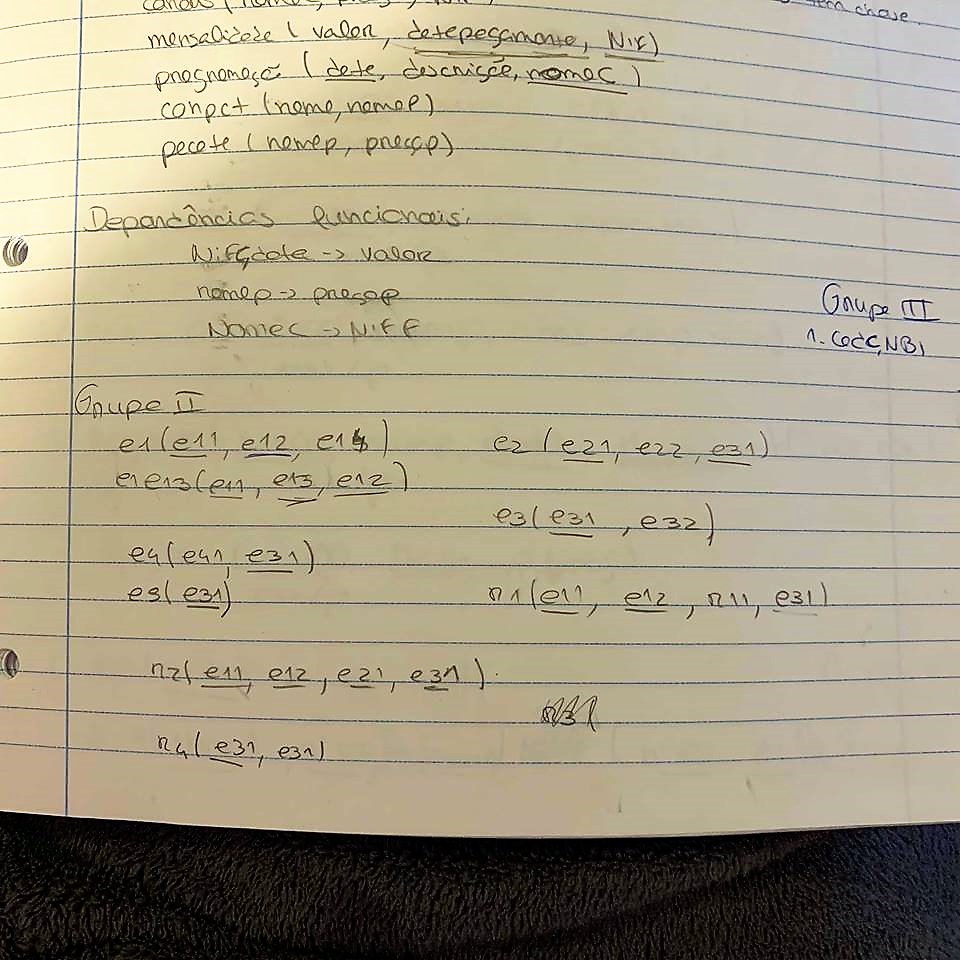 mensalidade ( valor, datapagamento, Nif)
programaçã ( date, descrição, nomeC )
conpct (nome, nomeP)
pacote ( nomep, preçop)
Dependências funcionais:
Nif, date -> valor
nomep -> preçop
NomeC -> NIFF
Grupo III
1. CodC, NBI
Grupo II
e1(e11, e12, e14)
e2 (e21, e22, e31)
e1e13(e11, e13, e12)
e3(e31, e32)
e4(e41, e31)
e3(e31)
r1(e11, e12, r11, e31)
r2( e11, e12, e21, e31)
r4( e31, e31)